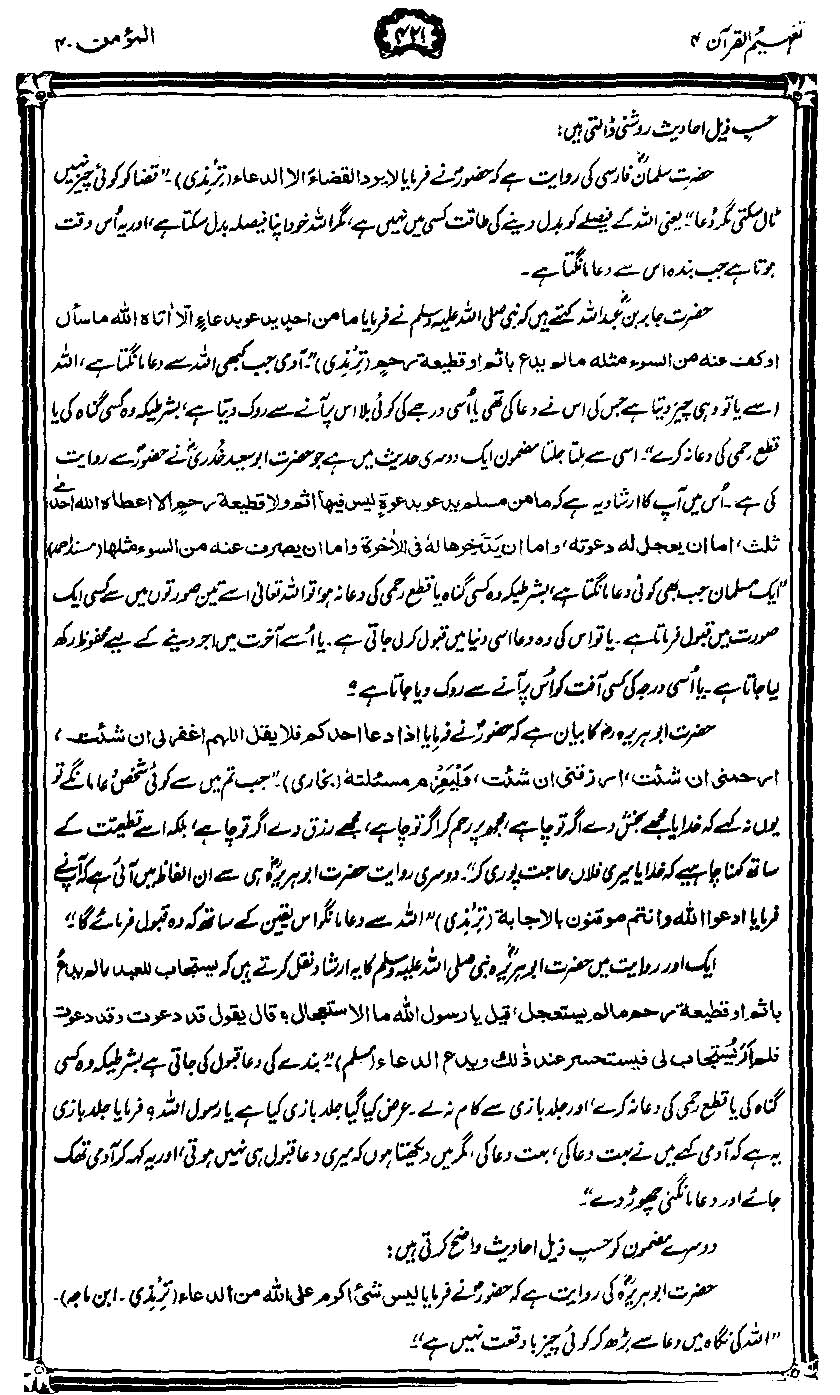 تفہیم القرآن ۴
۴۲۱
المؤمن ۴۰
حسبِ ذیل احادیث روشنی ڈالتی ہیں:
حضرت سلمانؓ فارسی کی روایت ہے کہ حضورؐ نے فرمایا لا یرد القضاءَ الا الدعاء (ترمذی)۔ "قضا کو کوئی چیز نہیں
ٹال سکتی مگر دُعا"۔ یعنی اللہ کے فیصلے کو بدل دینے کی طاقت کسی میں نہیں ہے، مگر اللہ خود اپنا فیصلہ بدل سکتا ہے، اور یہ اُس وقت
ہوتا ہے جب بندہ اس سے دعا مانگتا ہے۔
حضرت جابر بن عبداللہؓ کہتے ہیں کہ نبی صلی اللہ علیہ وسلم نے فرمایا ما من احدٍ یدعو بدعاءٍ الّا أتاہ اللہ ما سأل
او کف عنہ من السوء مثلہ مالم یدع باثم او قطیعة رحم (ترمذی)"۔ آدمی جب کبھی اللہ سے دعا مانگتا ہے، اللہ
اسے یا تو وہی چیز دیتا ہے جس کی اس نے دعا کی تھی یا اُسی درجے کی کوئی بلا اس پر آنے سے روک دیتا ہے، بشرطیکہ وہ کسی گناہ کی یا
قطع رحمی کی دعا نہ کرے"۔ اسی سے ملتا جلتا مضمون ایک دوسری حدیث میں ہے جو حضرت ابوسعید خُدریؓ نے حضورؐ سے روایت
کی ہے۔ اُس میں آپ کا ارشاد یہ ہے کہ ما من مسلم یدعو بدعوةٍ لیس فیہا اثم ولا قطیعة رحم الا اعطاہ اللہ احدٰی
ثلث، اما ان یعجل لہ دعوتہ، واما ان یدّخرھا لہٗ فی الاٰخرة واما ان یصرف عنہ من السوء مثلہا (مسند احمد)
"ایک مسلمان جب بھی کوئی دعا مانگتا ہے، بشرطیکہ وہ کسی گناہ یا قطع رحمی کی دعا نہ ہو تو اللہ تعالیٰ اسے تین صورتوں میں سے کسی ایک
صورت میں قبول فرماتا ہے۔ یا تو اس کی وہ دعا اسی دنیا میں قبول کر لی جاتی ہے۔ یا اُسے آخرت میں اجر دینے کے لیے محفوظ رکھ
لیا جاتا ہے۔ یا اُسی درجہ کی کسی آفت کو اُس پر آنے سے روک دیا جاتا ہے"
حضرت ابوہریرہؓ کا بیان ہے کہ حضورؐ نے فرمایا اذا دعا احدکم فلا یقل اللہم اغفرلی ان شئت،
ارحمنی ان شئت، ارزقنی ان شئت، ولْیَعْزِم مسئلتہٗ (بخاری)۔ "جب تم میں سے کوئی شخص دُعا مانگے تو
یوں نہ کہے کہ خدایا مجھے بخش دے اگر تو چاہے، مجھ پر رحم کر اگر تو چاہے، مجھے رزق دے اگر تو چاہے، بلکہ اسے قطعیت کے
ساتھ کہنا چاہیے کہ خدایا میری فلاں حاجت پوری کر"۔ دوسری روایت حضرت ابوہریرہؓ ہی سے ان الفاظ میں آئی ہے کہ آپؐ نے
فرمایا ادعوا اللہ وانتم موقنون بالاجابة (ترمذی) "اللہ سے دعا مانگو اس یقین کے ساتھ کہ وہ قبول فرمائے گا"۔
ایک اور روایت میں حضرت ابوہریرہؓ نبی صلی اللہ علیہ وسلم کا یہ ارشاد نقل کرتے ہیں کہ یستجاب للعبد مالم یدعُ
باثم او قطیعة رحم مالم یستعجل، قیل یا رسول اللہ ما الاستعجال؟ قال یقول قد دعوت وقد دعوت
فلم اَرَ یُستجاب لی فیستحسر عند ذٰلک ویدع الدعاء (مسلم)"۔ بندے کی دعا قبول کی جاتی ہے بشرطیکہ وہ کسی
گناہ کی یا قطع رحمی کی دعا نہ کرے، اور جلد بازی سے کام نہ لے۔ عرض کیا گیا جلد بازی کیا ہے یا رسول اللہ؟ فرمایا جلد بازی
یہ ہے کہ آدمی کہے میں نے بہت دعا کی، بہت دعا کی، مگر میں دیکھتا ہوں کہ میری دعا قبول ہی نہیں ہوتی، اور یہ کہہ کر آدمی تھک
جائے اور دعا مانگنی چھوڑ دے"۔
دوسرے مضمون کو حسبِ ذیل احادیث واضح کرتی ہیں:
حضرت ابوہریرہؓ کی روایت ہے کہ حضورؐ نے فرمایا لیس شئ اکرم علی اللہ من الدعاء (ترمذی۔ ابن ماجہ)۔
"اللہ کی نگاہ میں دعا سے بڑھ کر کوئی چیز باوقعت نہیں ہے"۔